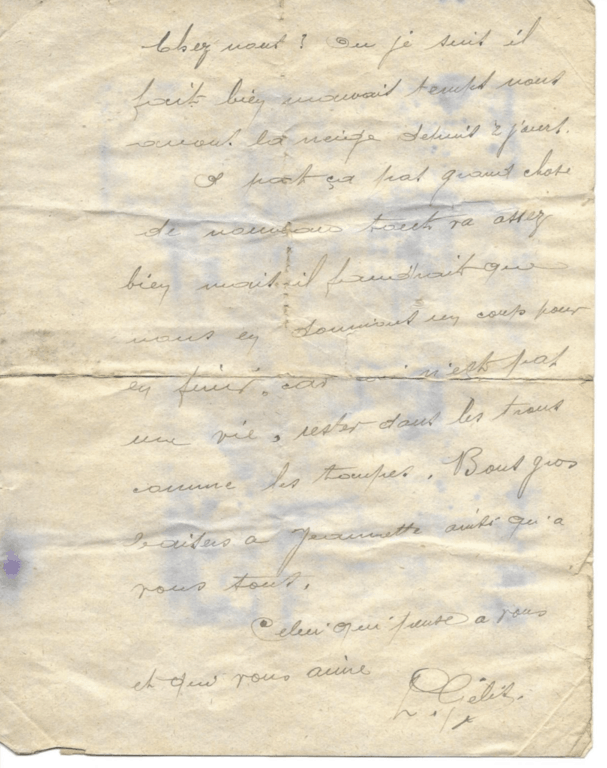 Chez nous? Ou je suis il
fait bien mauvais temps nous
avons la neige depuis 2 jours.
A part ça pas grand chose
de nouveau tout va assez
bien mais il faudrait que
nous en donnions un coup pour
en finir, car n'est pas
une vie, rester dans les trous
comme les taupes. Bons gros
baisers a Jeannette ainsi qu'a
vous tous.
Celui qui pense a vous
et qui vous aime